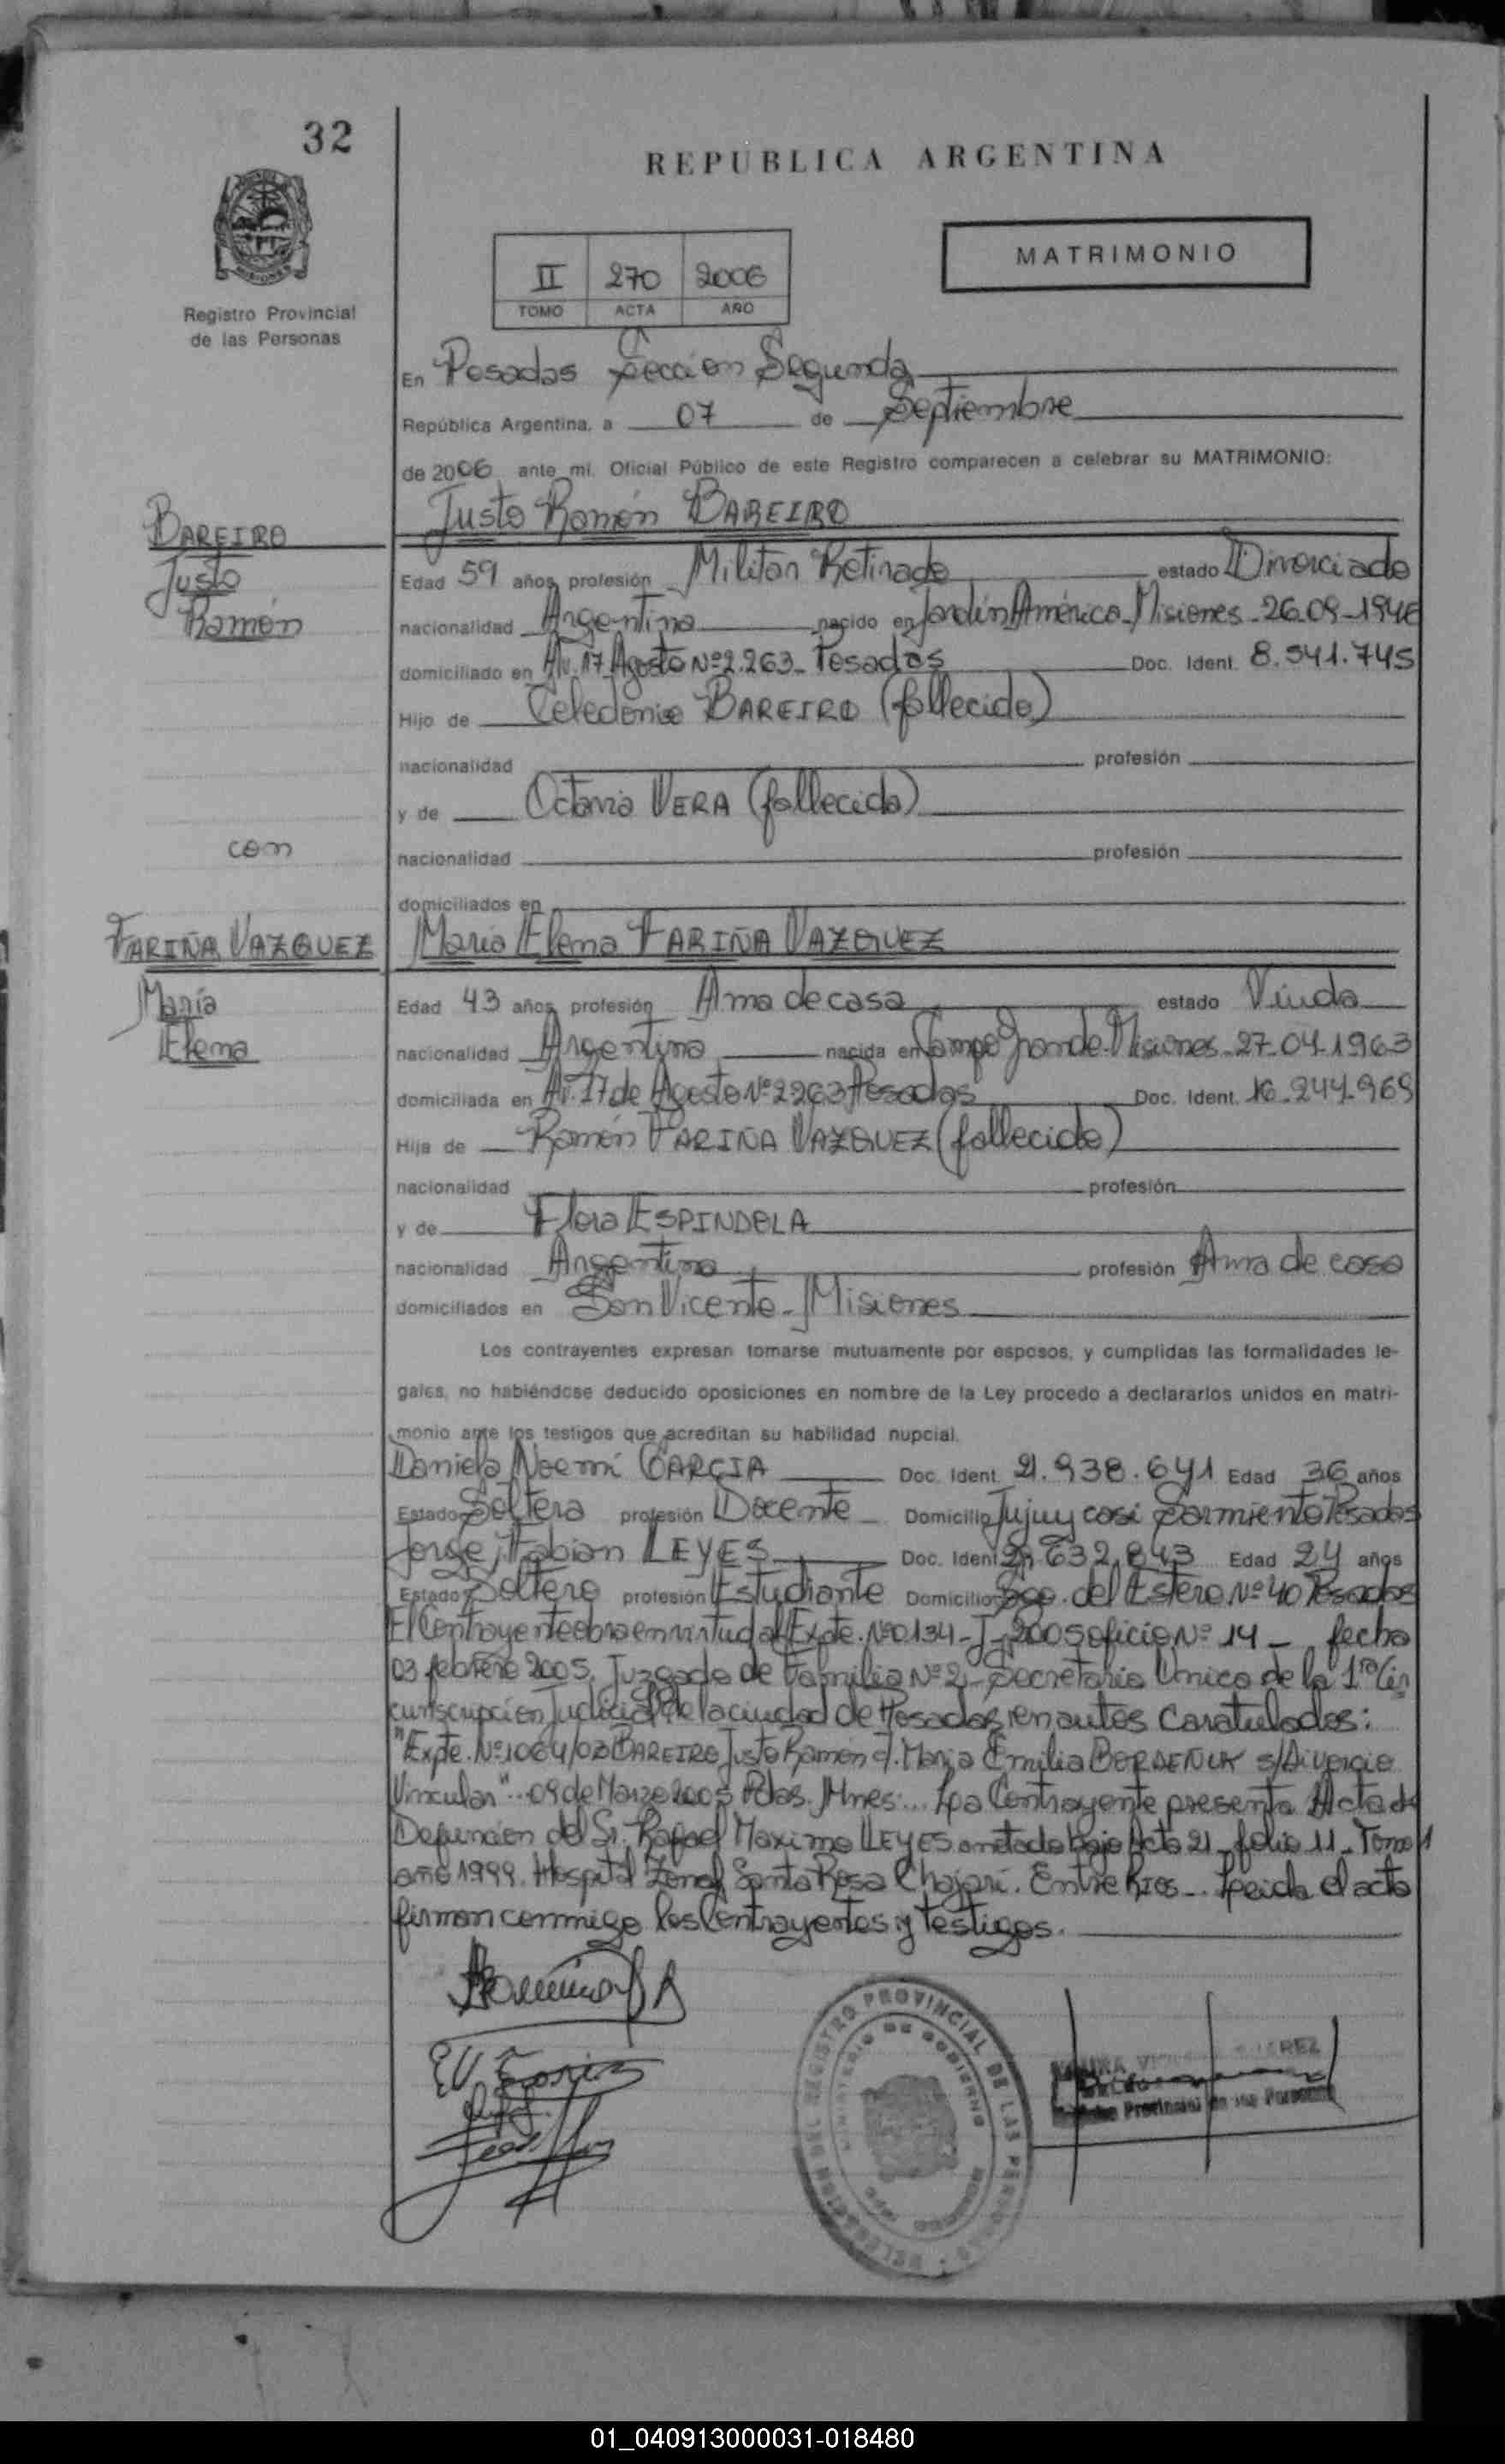 32
REPUBLICA ARGENTINA
MATRIMONIO
II 270 2006
TOMO ACTA AÑO
Registro Provincial
de las Personas
En Posadas Sección Segunda
República Argentina, a 07 de Septiembre
de 2006, ante mí, Oficial Público de este Registro comparecen a celebrar su MATRIMONIO:
Justo Ramón BAREIRO
BAREIRO
Justo
Ramón
Edad 59 años, profesión Militar Retirado estado Divorciado
nacionalidad Argentina nacido en Jardín América-Misiones-26-09-1946
domiciliado en Av. 17 Agosto Nº2.263-Posadas Doc. Ident. 8.541.745
Hijo de Celedonio BAREIRO (fallecido)
nacionalidad profesión
y de Octavia VERA (fallecida)
con
nacionalidad profesión
domiciliados en
FARIÑA VAZQUEZ María Elena FARIÑA VAZQUEZ
María
Elena
Edad 43 años, profesión Ama de casa estado Viuda
nacionalidad Argentina nacida en Campo Grande-Misiones-27-04-1963
domiciliada en Av. 17 de Agosto Nº2263 Posadas Doc. Ident. 16.244.969
Hija de Ramón FARIÑA VAZQUEZ (fallecido)
nacionalidad profesión
y de Flora ESPINDOLA
nacionalidad Argentina profesión Ama de casa
domiciliados en San Vicente-Misiones
Los contrayentes expresan tomarse mutuamente por esposos, y cumplidas las formalidades le-
gales, no habiéndose deducido oposiciones en nombre de la Ley procedo a declararlos unidos en matri-
monio ante los testigos que acreditan su habilidad nupcial.
Daniela Noemí GARCIA Doc. Ident. 21.938.641 Edad 36 años
Estado Soltera profesión Docente Domicilio Jujuy casi Sarmiento Posadas
Jorge Fabian LEYES Doc. Ident. 29.632.843 Edad 24 años
Estado Soltero profesión Estudiante Domicilio Sgo. del Estero Nº 40 Posadas
El Contrayente obra en virtud al Expte. Nº0134-J-2005 oficio Nº 14- fecha
03 febrero 2005, Juzgado de Familia Nº 2- Secretaria Unica de la 1ra Cir
cunscripcion Judicial de la ciudad de Posadas, en autos Caratulados:
"Expte. Nº1064/03 BAREIRO Justo Ramón c/. María Emilia BORDENUK s/Divorcio
Vincular"..09 de Marzo 2005 Pdas. Mnes:... La Contrayente presenta Acta de
Defuncion del Sr. Rafael Maximo LEYES anotado bajo Acta 21-folio 11-Tomo 1
año 1999. Hospital Zonal Santa Rosa Chajarí. Entre Rios-. Leida el acta
firman conmigo los Contrayentes y testigos.
DELEGACION DEL REGISTRO PROVINCIAL DE LAS PERSONAS
MINISTERIO DE GOBIERNO
Provincial de las Personas
01_040913000031-018480